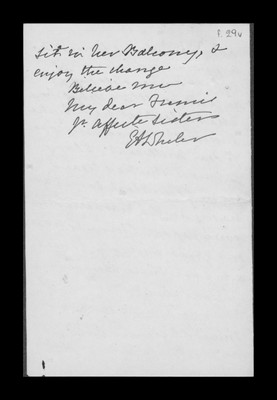 f. 29v
sit in her Balcony, &
enjoy the change
Believe me
My dear
Yr. affecte Sister